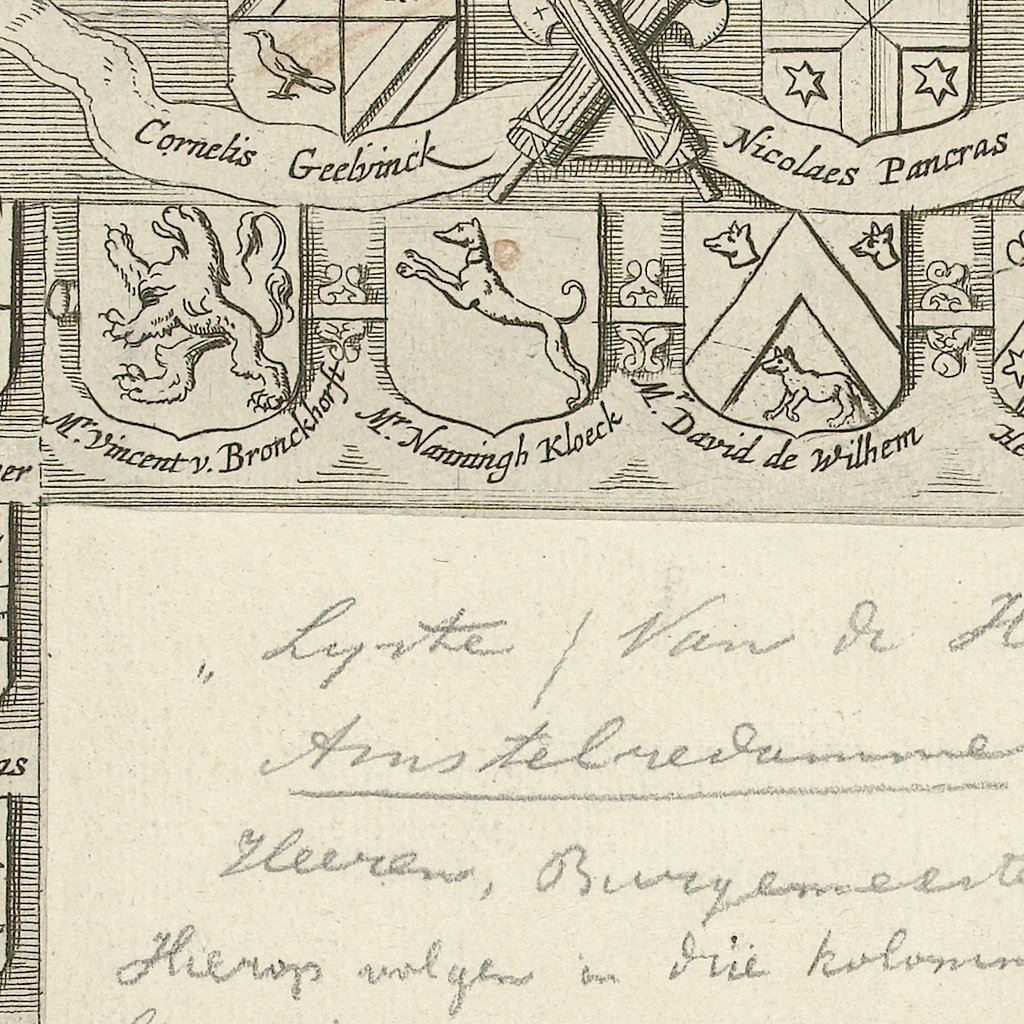 Cornelis Geelvinck
Nicolaes Pancras
Mr. Vincent v. Bronckhorst
Mr. Nanningh Kloeck
Mr David de Wilhem
He
er
as
„ Lyste / Van de H
Amstelredamme
Heeren, Burgemeeste
Hierop volgen in drie kolomm